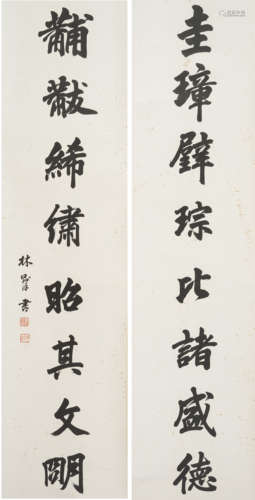 圭璋璧琮比諸盛德
黼黻絺繡昭其文明
林
書